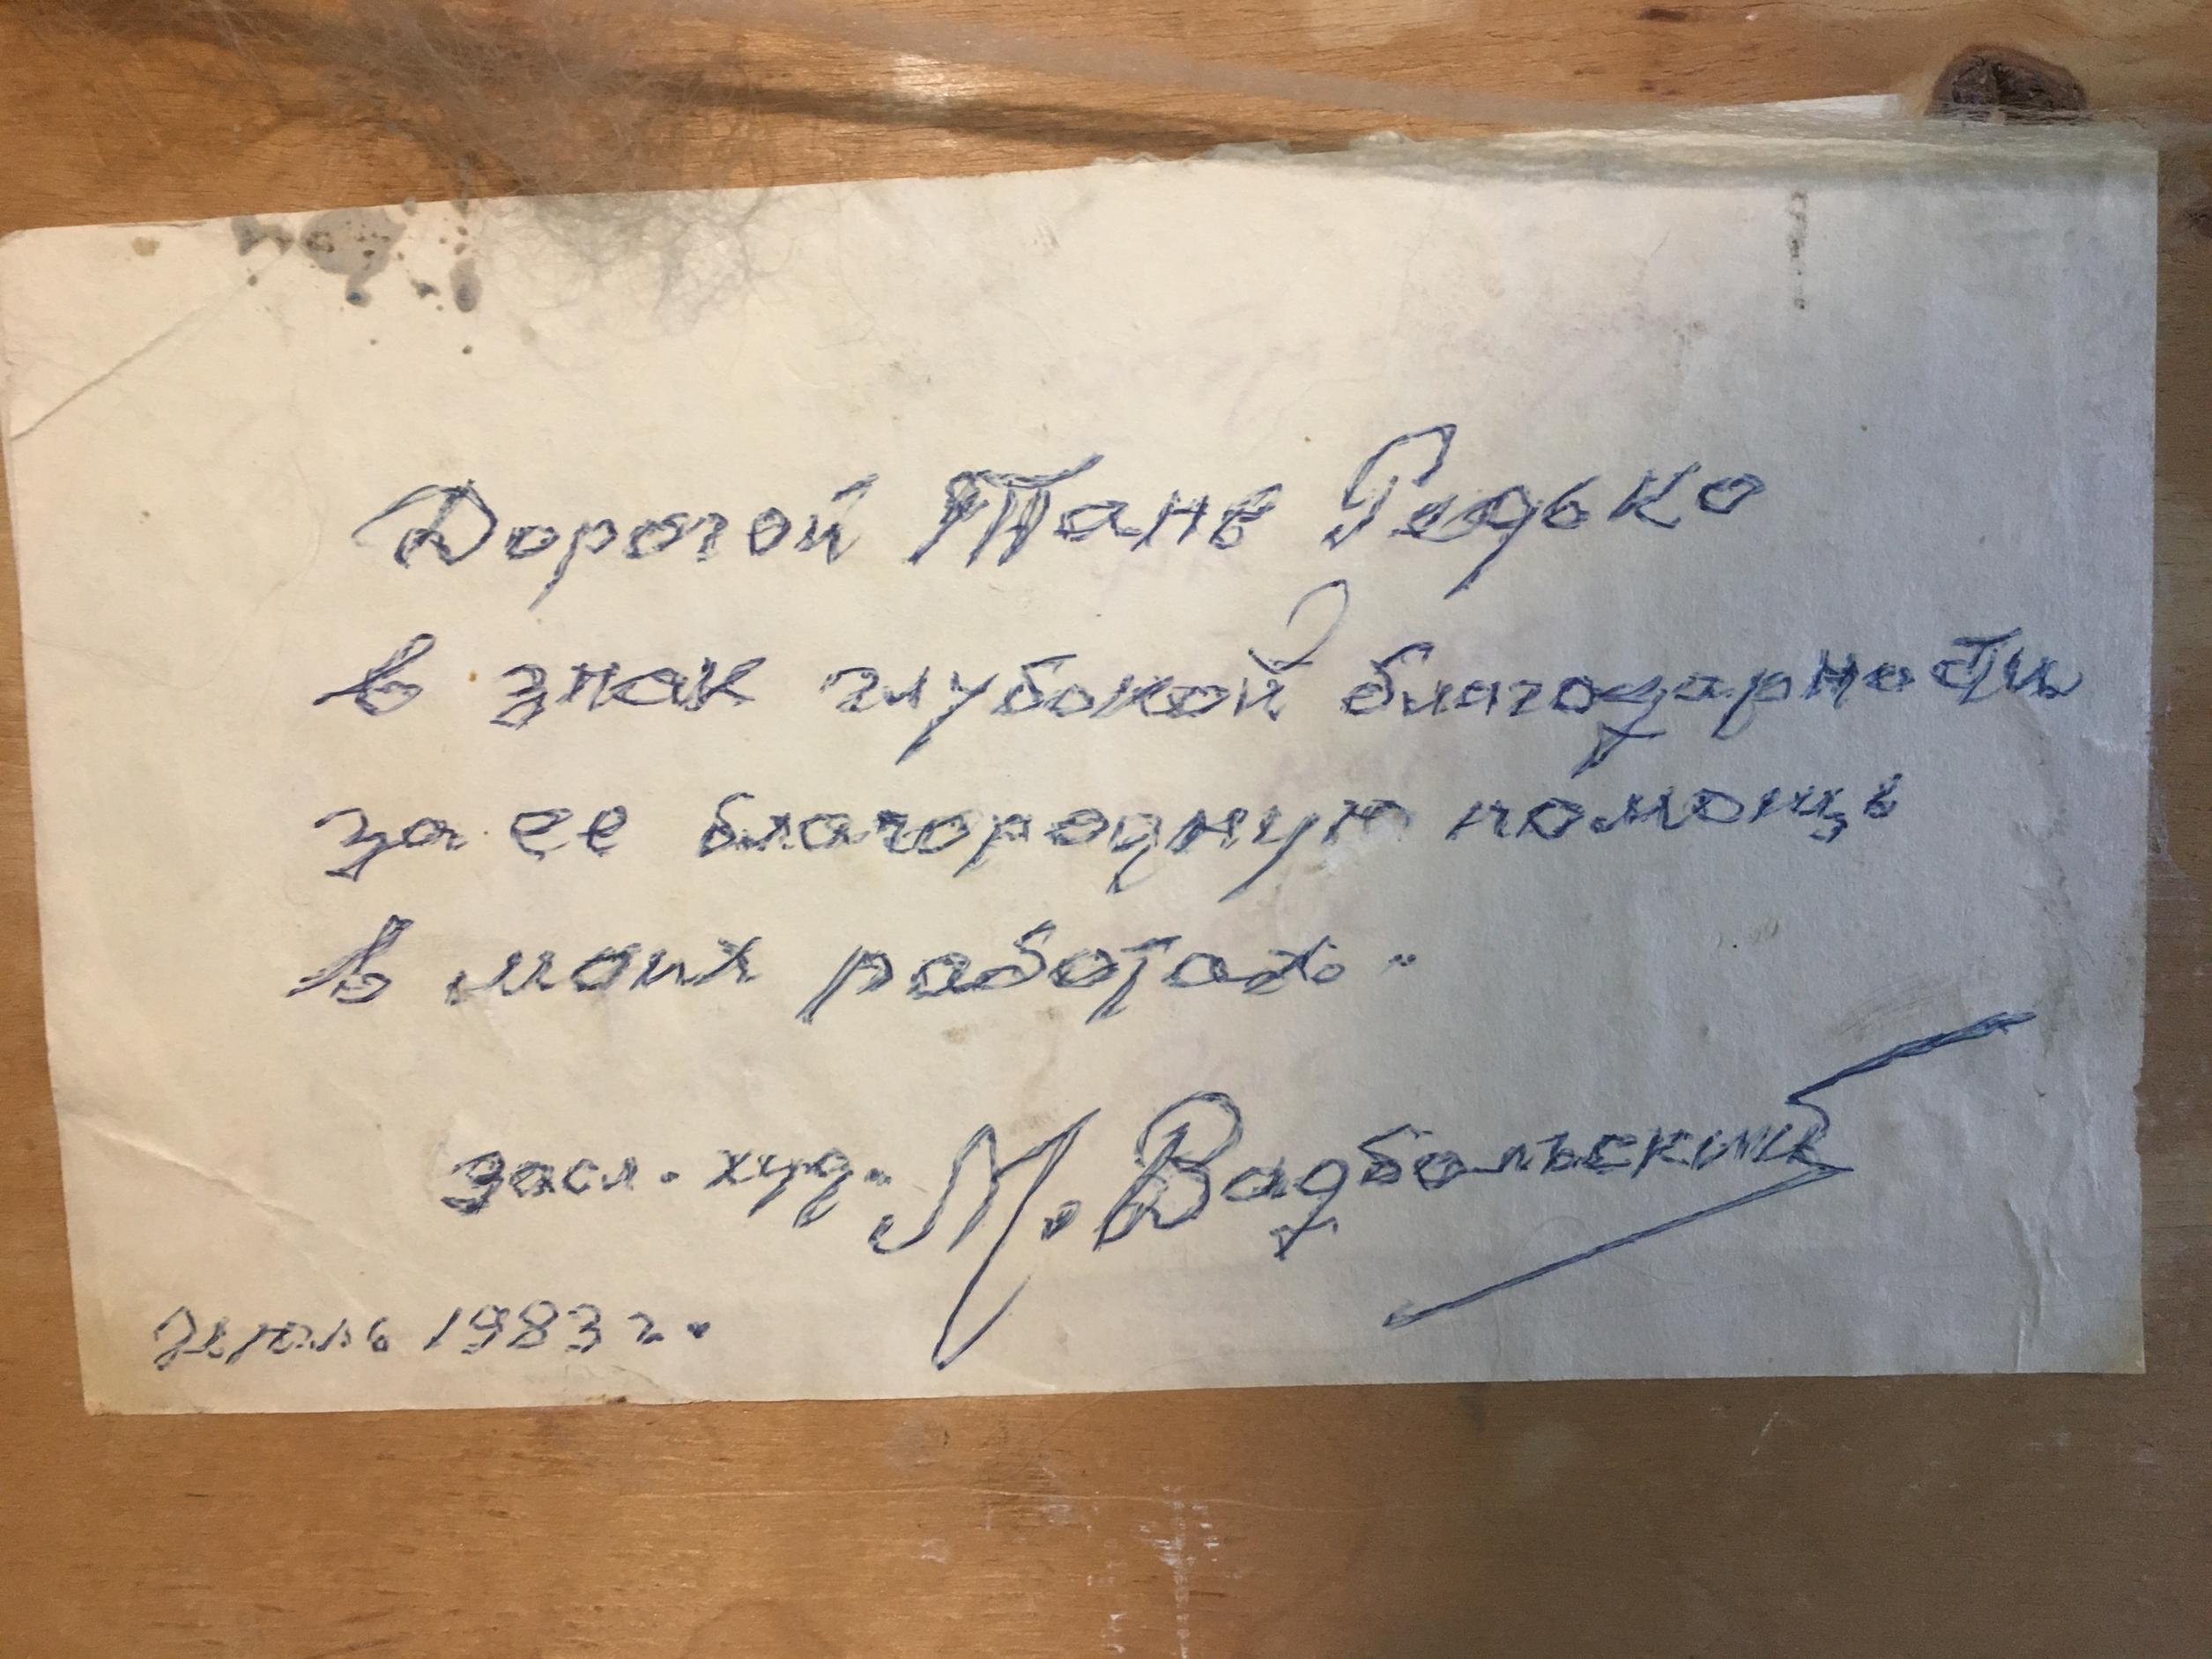 Дорогой Тане Редько
в знак глубокой благодарности
за ее благородную помощь
в моих работах.
засл. худ. М. Вадбольский
1983 г.